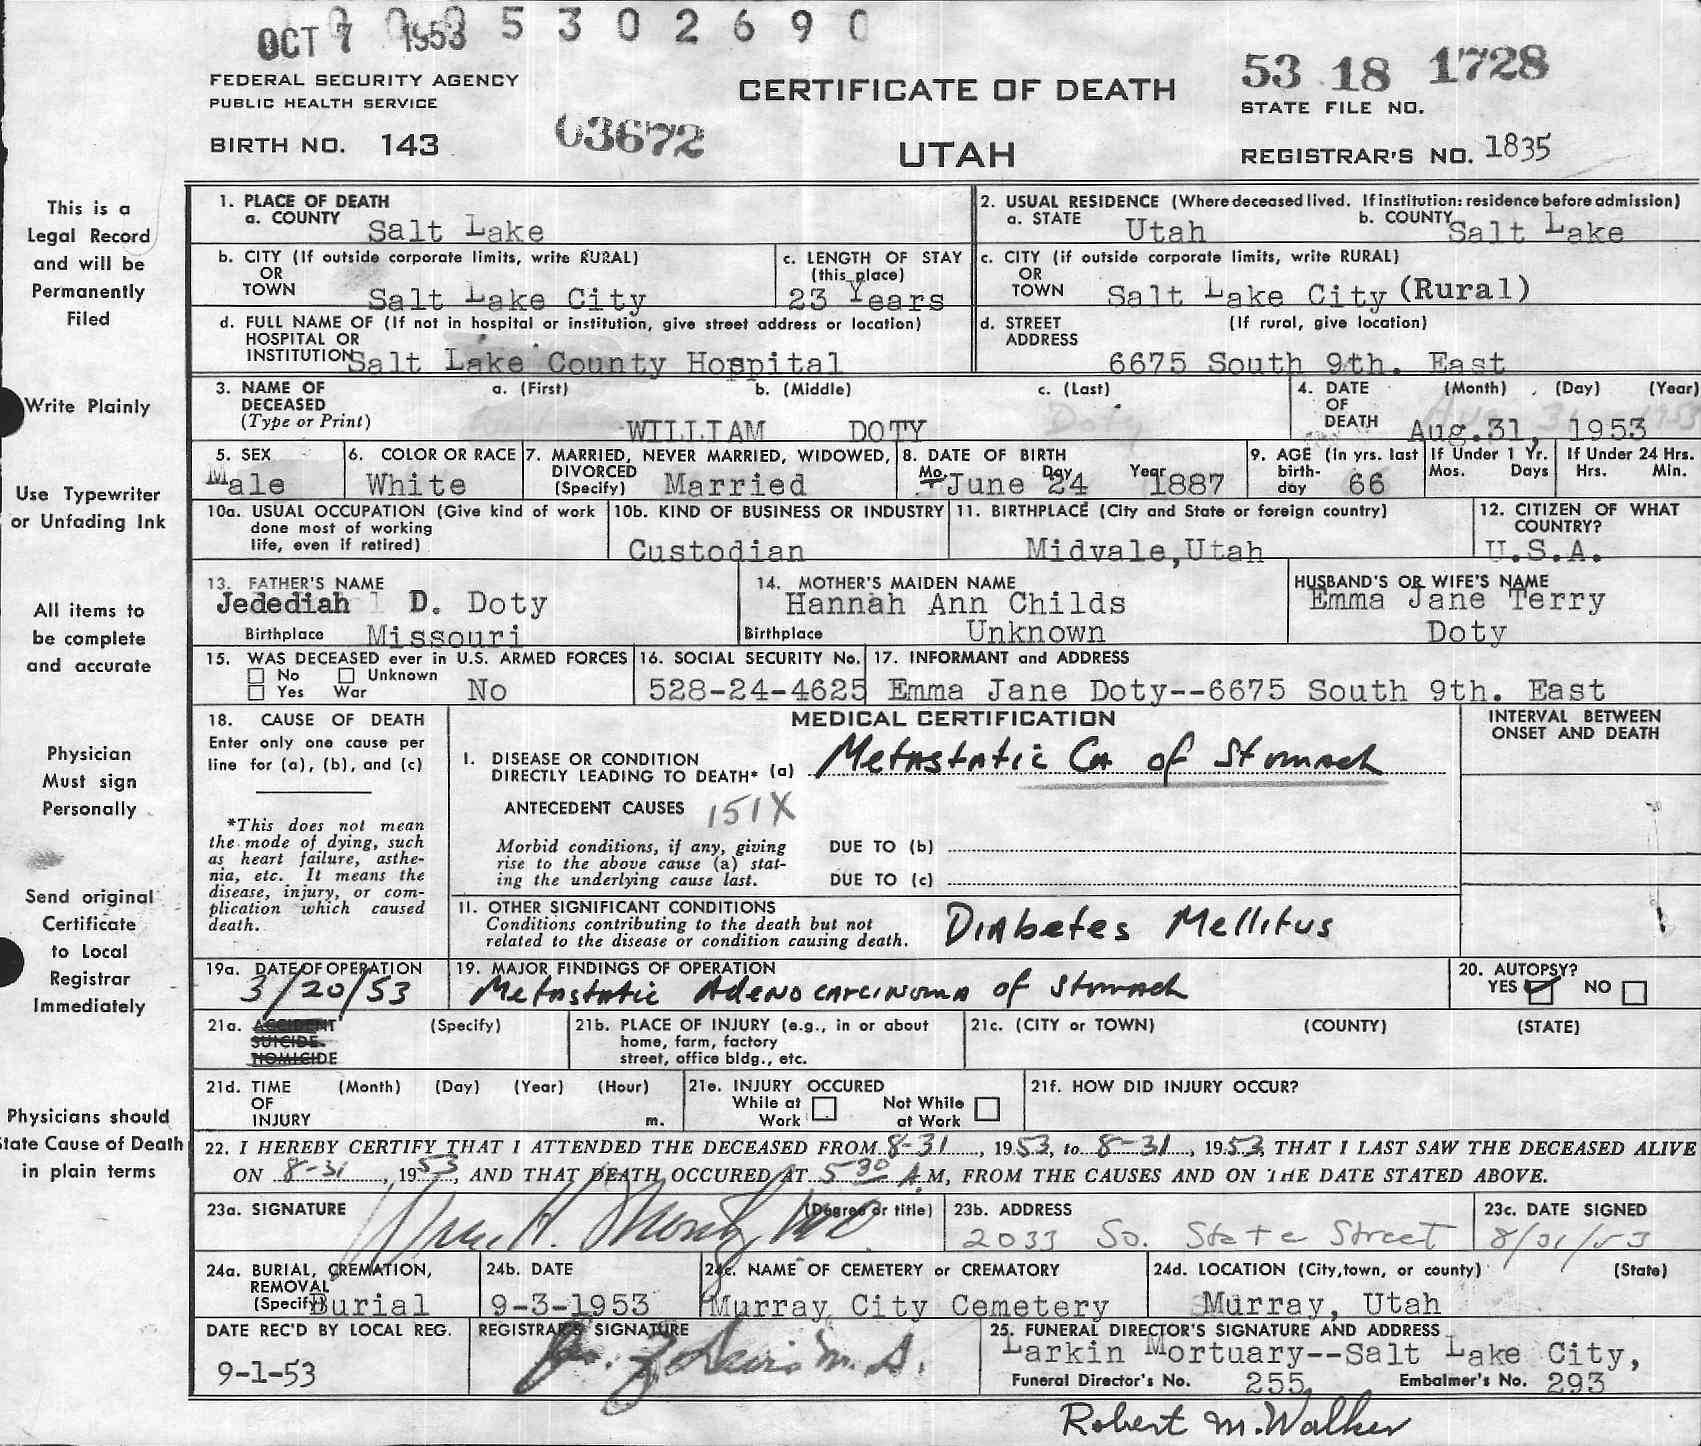 OCT 7 1953 5 3 0 2 6 9 0
FEDERAL SECURITY AGENCY
PUBLIC HEALTH SERVICE
BIRTH NO. 143
03672
CERTIFICATE OF DEATH
UTAH
53 18 1728
STATE FILE NO.
REGISTRAR'S NO. 1835
This is a
Legal Record
and will be
Permanently
Filed
Write Plainly
Use Typewriter
or Unfading Ink
All items to
be complete
and accurate
Physician
Must sign
Personally
Send original
Certificate
to Local
Registrar
Immediately
Physicians should
State Cause of Death
in plain terms
1. PLACE OF DEATH
a. COUNTY Salt Lake
2. USUAL RESIDENCE (Where deceased lived. If institution: residence before admission)
a. STATE Utah b. COUNTY Salt Lake
b. CITY (If outside corporate limits, write RURAL)
OR
TOWN Salt Lake City
c. LENGTH OF STAY
(this place)
23 Years
c. CITY (if outside corporate limits, write RURAL)
OR
TOWN Salt Lake City (Rural)
d. FULL NAME OF (If not in hospital or institution, give street address or location)
HOSPITAL OR
INSTITUTION Salt Lake County Hospital
d. STREET (If rural, give location)
ADDRESS
6675 South 9th. East
3. NAME OF a. (First) b. (Middle) c. (Last)
DECEASED
(Type or Print) WILLIAM DOTY Doty
4. DATE (Month) (Day) (Year)
OF
DEATH Aug.31, 1953
5. SEX
Male
6. COLOR OR RACE
White
7. MARRIED, NEVER MARRIED, WIDOWED,
DIVORCED
(Specify) Married
8. DATE OF BIRTH
Mo. Day Year
June 24 1887
9. AGE (in yrs. last
birth-
day 66
If Under 1 Yr.
Mos. Days
If Under 24 Hrs.
Hrs. Min.
10a. USUAL OCCUPATION (Give kind of work
done most of working
life, even if retired)
10b. KIND OF BUSINESS OR INDUSTRY
Custodian
11. BIRTHPLACE (City and State or foreign country)
Midvale,Utah
12. CITIZEN OF WHAT
COUNTRY?
U.S.A.
13. FATHER'S NAME
Jedediah D. Doty
Birthplace Missouri
14. MOTHER'S MAIDEN NAME
Hannah Ann Childs
Birthplace Unknown
HUSBAND'S OR WIFE'S NAME
Emma Jane Terry
Doty
15. WAS DECEASED ever in U.S. ARMED FORCES
No Unknown
Yes War No
16. SOCIAL SECURITY No.
528-24-4625
17. INFORMANT and ADDRESS
Emma Jane Doty--6675 South 9th. East
18. CAUSE OF DEATH
Enter only one cause per
line for (a), (b), and (c)
*This does not mean
the mode of dying, such
as heart failure, asthe-
nia, etc. It means the
disease, injury, or com-
plication which caused
death.
MEDICAL CERTIFICATION
INTERVAL BETWEEN
ONSET AND DEATH
I. DISEASE OR CONDITION
DIRECTLY LEADING TO DEATH* (a) Metastatic Ca of Stomach
ANTECEDENT CAUSES 151X
Morbid conditions, if any, giving
rise to the above cause (a) stat-
ing the underlying cause last.
DUE TO (b)
DUE TO (c)
11. OTHER SIGNIFICANT CONDITIONS
Conditions contributing to the death but not
related to the disease or condition causing death.
Diabetes Mellitus
19a. DATE OF OPERATION
3/20/53
19. MAJOR FINDINGS OF OPERATION
Metastatic Adenocarcinoma of Stomach
20. AUTOPSY?
YES NO
21a. ACCIDENT (Specify)
SUICIDE
HOMICIDE
21b. PLACE OF INJURY (e.g., in or about
home, farm, factory
street, office bldg., etc.
21c. (CITY or TOWN) (COUNTY) (STATE)
21d. TIME (Month) (Day) (Year) (Hour)
OF
INJURY m.
21e. INJURY OCCURED
While at Not While
Work at Work
21f. HOW DID INJURY OCCUR?
22. I HEREBY CERTIFY THAT I ATTENDED THE DECEASED FROM 8-31, 1953, to 8-31, 1953, THAT I LAST SAW THE DECEASED ALIVE
ON 8-31, 1953, AND THAT DEATH OCCURED AT 5 30 A.M, FROM THE CAUSES AND ON THE DATE STATED ABOVE.
23a. SIGNATURE (Degree or title)
23b. ADDRESS
2033 So. State Street
23c. DATE SIGNED
8/31/53
24a. BURIAL, CREMATION,
REMOVAL
(Specify) Burial
24b. DATE
9-3-1953
24c. NAME OF CEMETERY or CREMATORY
Murray City Cemetery
24d. LOCATION (City, town, or county) (State)
Murray, Utah
DATE REC'D BY LOCAL REG.
9-1-53
REGISTRAR'S SIGNATURE
25. FUNERAL DIRECTOR'S SIGNATURE AND ADDRESS
Larkin Mortuary--Salt Lake City,
Funeral Director's No. 255 Embalmer's No. 293
Robert M. Walker